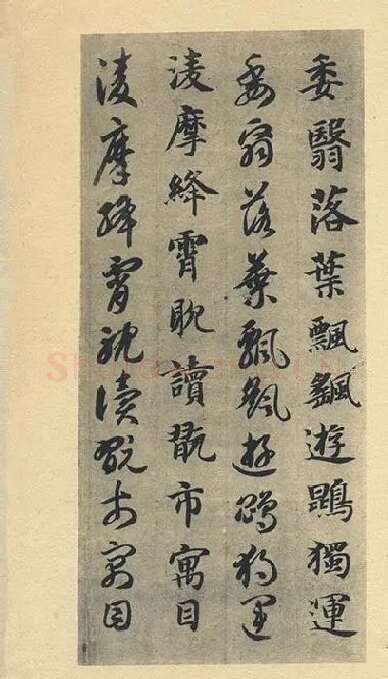 委翳落葉飄颻遊鵾獨運
委翳落葉飄颻遊鵾獨運
淩摩絳霄耽讀翫市寓目
淩摩絳霄耽讀翫市寓目